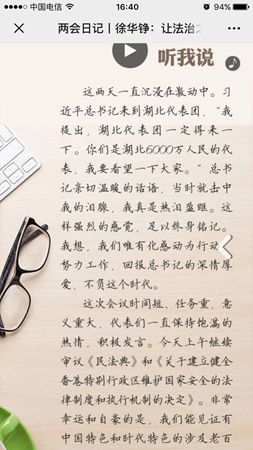 中国电信 16:40 94%
两会日记丨徐华铮：让法治
听我说
这两天一直沉浸在激动中。习
近平总书记来到湖北代表团，“我
提出，湖北代表团一定得来一
下。你们是湖北6000万人民的代
表，我要看望一下大家。”总书
记亲切温暖的话语，当时就击中
我的泪腺，我真是热泪盈眶。这
样强烈的感觉，足以终身铭记。
我想，我们唯有化感动为行动，
努力工作，回报总书记的深情厚
爱，不负这个时代。
这次会议时间短、任务重、意
义重大，代表们一直保持饱满的
热情，积极发言。今天上午继续
审议《民法典》和《关于建立健全
香港特别行政区维护国家安全的法
律制度和执行机制的决定》。非常
幸运和自豪的是，我们能见证有
中国特色和时代特色的涉及老百